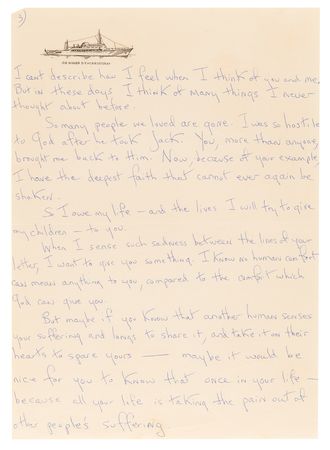 3)
I can't describe how I feel when I think of you and me.
But in these days I think of many things I never
thought about before.
So many people we loved are gone. I was so hostile
to God after he took Jack. You, more than anyone,
brought me back to Him. Now, because of your example,
I have the deepest faith that cannot ever again be
shaken.
So I owe my life – and the lives I will try to give
my children – to you.
When I sense such sadness between the lines of your
letter, I want to give you something. I know no human comfort
can mean anything to you, compared to the comfort which
God can give you.
But maybe if you know that another human senses
your suffering and longs to share it, and take it on their
hearts to spare yours — maybe it would be
nice for you to know that once in your life –
because all your life is taking the pain out of
other people's suffering.